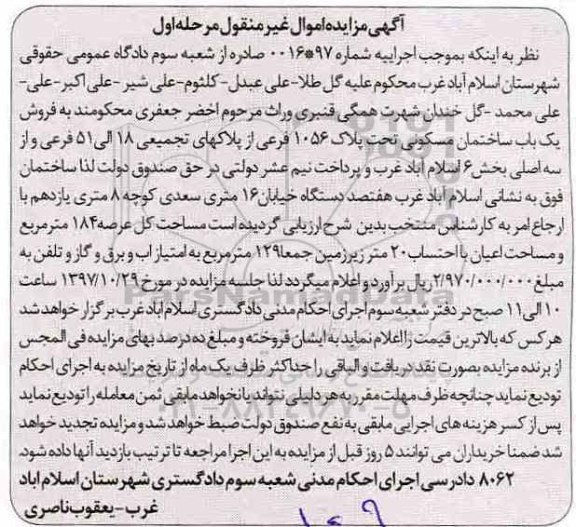 آگهی مزایده اموال غیر منقول مرحله اول
نظر به اینکه بموجب اجراییه شماره ۹۷*۰۰۱۶ صادره از شعبه سوم دادگاه عمومی حقوقی
شهرستان اسلام آباد غرب محکوم علیه گل طلا-علی عبدل-کلثوم-علی شیر-علی اکبر-علی-
علی محمد-گل خندان شهرت همگی قنبری وراث مرحوم اخضر جعفری محکومند به فروش
یک باب ساختمان مسکونی تحت پلاک ۱۰۵۶ فرعی از پلاکهای تجمیعی ۱۸ الی ۵۱ فرعی و از
سه اصلی بخش ۶ اسلام آباد غرب و پرداخت نیم عشر دولتی در حق صندوق دولت لذا ساختمان
فوق به نشانی اسلام آباد غرب هفتصد دستگاه خیابان ۱۶ متری سعدی کوچه ۸ متری یازدهم با
ارجاع امر به کارشناس منتخب بدین شرح ارزیابی گردیده است مساحت کل عرصه ۱۸۴ مترمربع
و مساحت اعیان با احتساب ۲۰ متر زیرزمین جمعا ۱۲۹ مترمربع به امتیاز اب و برق و گاز و تلفن به
مبلغ ۲/۹۷۰/۰۰۰/۰۰۰ ریال برآورد و اعلام میگردد لذا جلسه مزایده در مورخ ۱۳۹۷/۱۰/۲۹ ساعت
۱۰ الی ۱۱ صبح در دفتر شعبه سوم اجرای احکام مدنی دادگستری اسلام آباد غرب برگزار خواهد شد
هرکس که بالاترین قیمت را اعلام نماید به ایشان فروخته و مبلغ ده درصد بهای مزایده فی المجس
از برنده مزایده بصورت نقد دریافت و الباقی را حداکثر ظرف یک ماه از تاریخ مزایده به اجرای احکام
تودیع نماید چنانچه ظرف مهلت مقرر به هر دلیلی نتواند یا نخواهد مابقی ثمن معامله را تودیع نماید
پس از کسر هزینه های اجرایی مابقی به نفع صندوق دولت ضبط خواهد شد و مزایده تجدید خواهد
شد ضمنا خریداران می توانند ۵ روز قبل از مزایده به این اجرا مراجعه تا ترتیب بازدید آنها داده شود.
۸۰۶۲ دادرسی اجرای احکام مدنی شعبه سوم دادگستری شهرستان اسلام اباد
غرب-یعقوب ناصری
ParsNamadData
۰۲۱-۸۸۳۴۹۶۷۰-۵